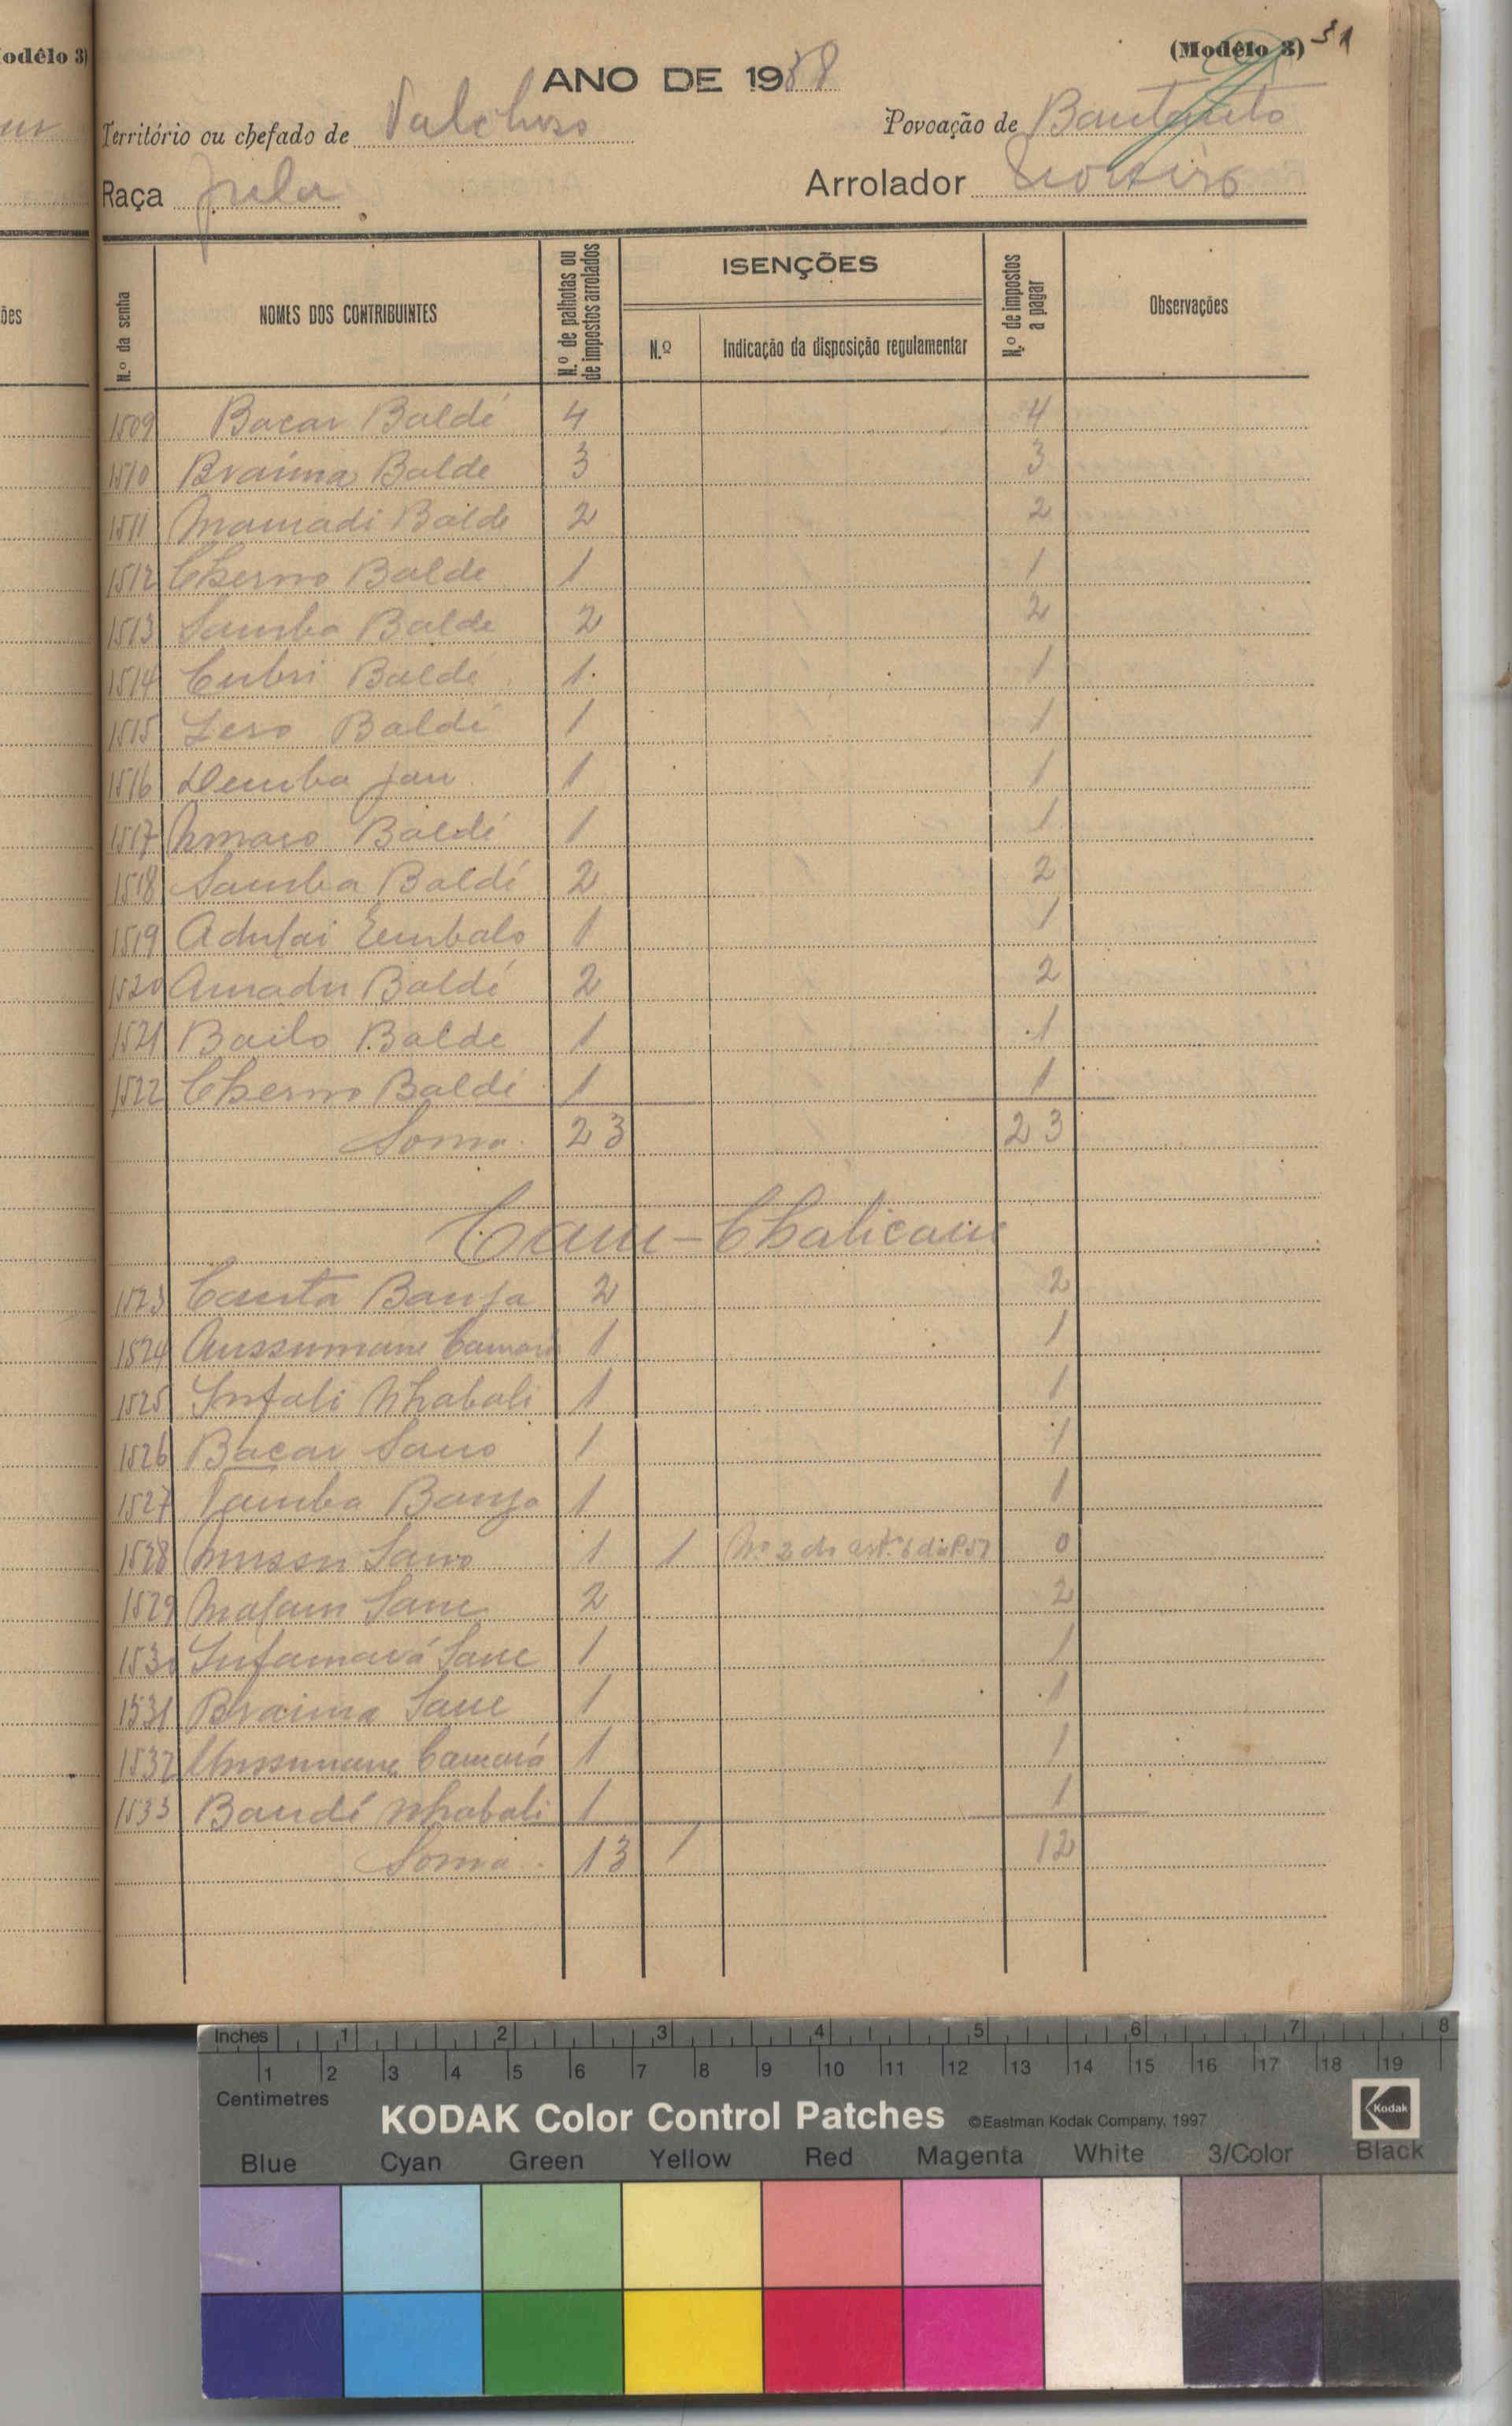 odêlo 3)
(Modêlo 3) 31
ANO DE 1938
Território ou chefado de
Povoação de
Raça Jula
Arrolador
ões
N.º da senha
NOMES DOS CONTRIBUINTES
N.º de palhotas ou de impostos arrolados
ISENÇÕES
N.º
Indicação da disposição regulamentar
N.º de impostos a pagar
Observações
1509 Bacar Baldé 4 4
1510 Braima Balde 3 3
1511 Mamadi Balde 2 2
1512 Cherno Balde 1 1
1513 Samba Balde 2 2
1514 Baldé 1 1
1515 Baldé 1 1
1516 Demba Jau 1 1
1517 Umaro Baldé 1 1
1518 Samba Baldé 2 2
1519 Adulai Embalo 1 1
1520 Amadu Baldé 2 2
1521 Bailo Balde 1 1
1522 Cherno Baldé 1 1
Soma 23 23
Cam-Chalicam
1523 Canta Banja 2 2
1524 Aussumane Camará 1 1
1525 Infali Nhabali 1 1
1526 Bacar Sano 1 1
1527 Banja 1 1
1528 Mussu Sano 1 1 Nº 2 do artº 6 0
1529 Malam Sane 2 2
1530 Infamará Sane 1 1
1531 Braima Sane 1 1
1532 Ussumane Camará 1 1
1533 Baudé Nhabali 1 1
Soma 13 1 12
Inches 1 2 3 4 5 6 7 8
1 2 3 4 5 6 7 8 9 10 11 12 13 14 15 16 17 18 19
Centimetres
KODAK Color Control Patches ©Eastman Kodak Company, 1997 Kodak
Blue Cyan Green Yellow Red Magenta White 3/Color Black